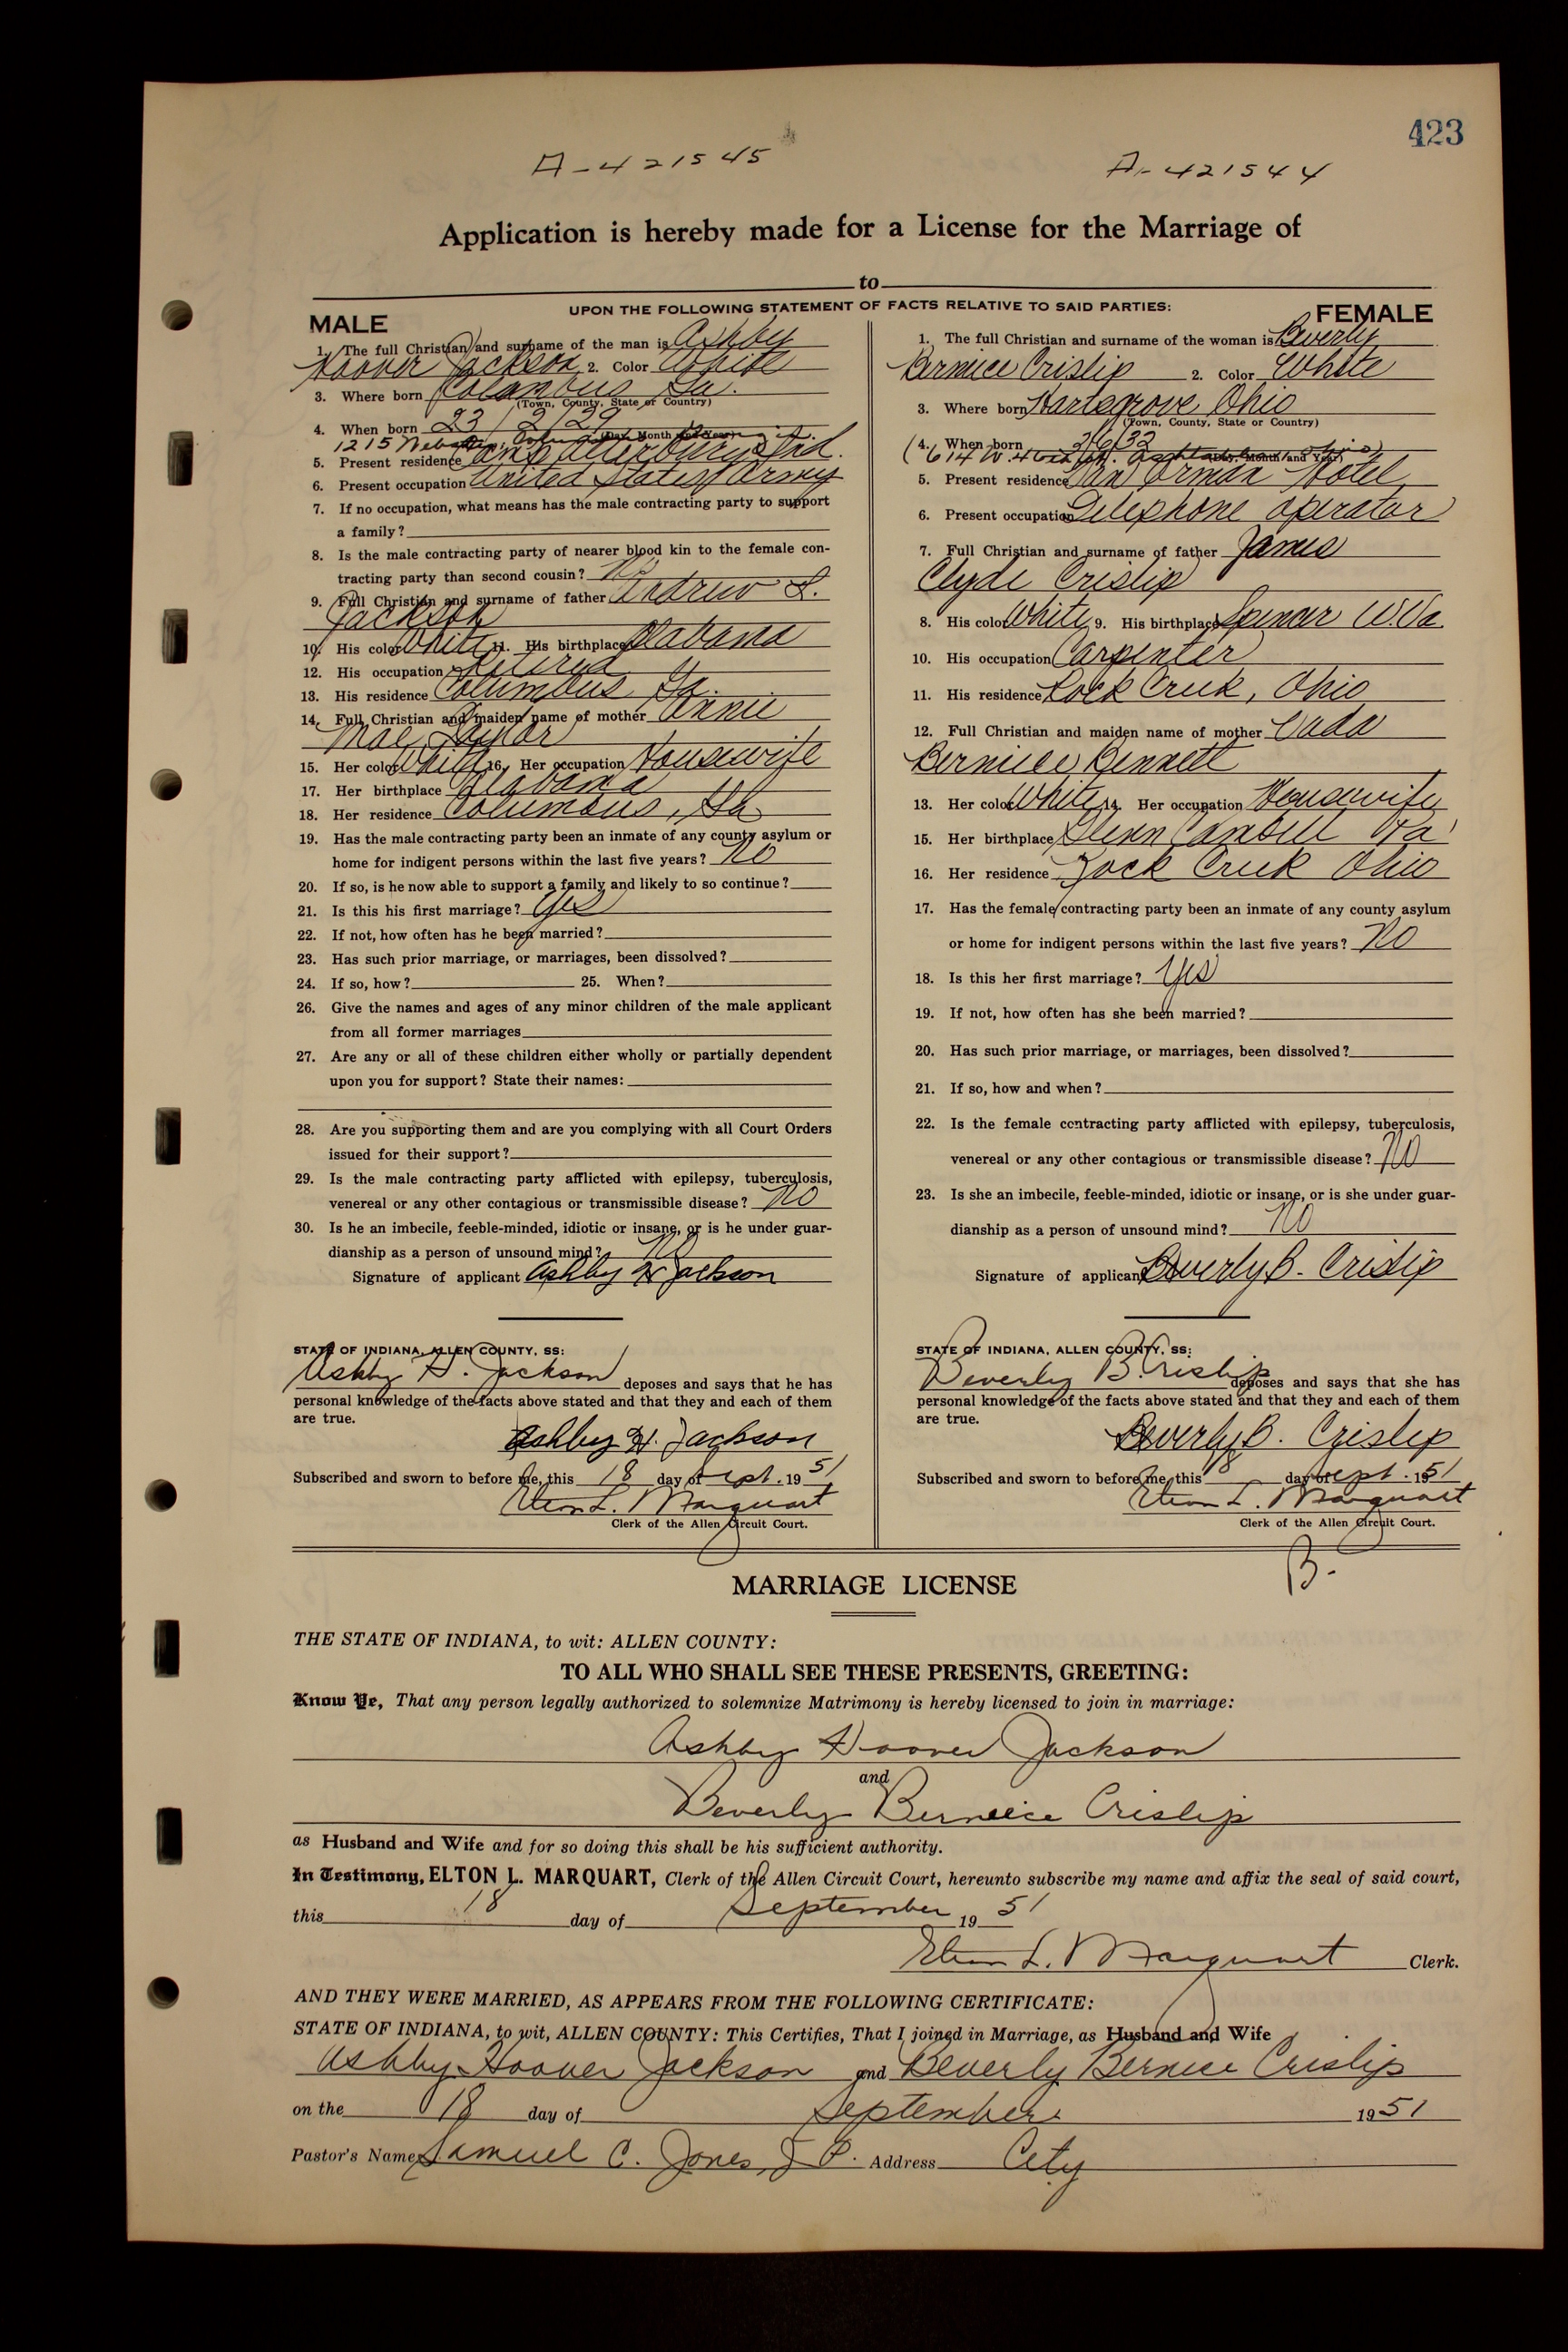 423
A-421545 A-421544
Application is hereby made for a License for the Marriage of
to
UPON THE FOLLOWING STATEMENT OF FACTS RELATIVE TO SAID PARTIES:
MALE
1. The full Christian and surname of the man is Ashby
Hoover Jackson 2. Color White
3. Where born Columbus Ga.
(Town, County, State or Country)
4. When born 23/2/29
(Day, Month and Year)
1215
5. Present residence Camp Atterbury Ind.
6. Present occupation United States Army
7. If no occupation, what means has the male contracting party to support
a family?
8. Is the male contracting party of nearer blood kin to the female con-
tracting party than second cousin? No
9. Full Christian and surname of father Andrew L.
Jackson
10. His color White 11. His birthplace Alabama
12. His occupation Retired
13. His residence Columbus Ga.
14. Full Christian and maiden name of mother Annie
Mae Taylor
15. Her color White 16. Her occupation Housewife
17. Her birthplace Alabama
18. Her residence Columbus, Ga
19. Has the male contracting party been an inmate of any county asylum or
home for indigent persons within the last five years? No
20. If so, is he now able to support a family and likely to so continue?
21. Is this his first marriage? Yes
22. If not, how often has he been married?
23. Has such prior marriage, or marriages, been dissolved?
24. If so, how? 25. When?
26. Give the names and ages of any minor children of the male applicant
from all former marriages
27. Are any or all of these children either wholly or partially dependent
upon you for support? State their names:
28. Are you supporting them and are you complying with all Court Orders
issued for their support?
29. Is the male contracting party afflicted with epilepsy, tuberculosis,
venereal or any other contagious or transmissible disease? No
30. Is he an imbecile, feeble-minded, idiotic or insane, or is he under guar-
dianship as a person of unsound mind? No
Signature of applicant Ashby H Jackson
STATE OF INDIANA, ALLEN COUNTY, SS:
Ashby H. Jackson deposes and says that he has
personal knowledge of the facts above stated and that they and each of them
are true.
Ashby H. Jackson
Subscribed and sworn to before me, this 18 day of Sept. 1951
Elton L. Marquart
Clerk of the Allen Circuit Court.
FEMALE
1. The full Christian and surname of the woman is Beverly
Bernice Crislip 2. Color White
3. Where born Hartsgrove Ohio
(Town, County, State or Country)
4. When born 2/6/32
(Day, Month and Year)
(614 W. 46th St. Ashtabula, Ohio)
5. Present residence Van Orman Hotel
6. Present occupation Telephone operator
7. Full Christian and surname of father James
Clyde Crislip
8. His color White 9. His birthplace Spencer W.Va.
10. His occupation Carpenter
11. His residence Rock Creek, Ohio
12. Full Christian and maiden name of mother Vada
Berniece Bennett
13. Her color White 14. Her occupation Housewife
15. Her birthplace Glenn Cambell Pa
16. Her residence Rock Creek Ohio
17. Has the female contracting party been an inmate of any county asylum
or home for indigent persons within the last five years? No
18. Is this her first marriage? Yes
19. If not, how often has she been married?
20. Has such prior marriage, or marriages, been dissolved?
21. If so, how and when?
22. Is the female contracting party afflicted with epilepsy, tuberculosis,
venereal or any other contagious or transmissible disease? No
23. Is she an imbecile, feeble-minded, idiotic or insane, or is she under guar-
dianship as a person of unsound mind? No
Signature of applicant Beverly B. Crislip
STATE OF INDIANA, ALLEN COUNTY, SS:
Beverly B. Crislip deposes and says that she has
personal knowledge of the facts above stated and that they and each of them
are true.
Beverly B. Crislip
Subscribed and sworn to before me, this 18 day of Sept. 1951
Elton L. Marquart
Clerk of the Allen Circuit Court.
B.
MARRIAGE LICENSE
THE STATE OF INDIANA, to wit: ALLEN COUNTY:
TO ALL WHO SHALL SEE THESE PRESENTS, GREETING:
Know Ye, That any person legally authorized to solemnize Matrimony is hereby licensed to join in marriage:
Ashby Hoover Jackson
and
Beverly Berniece Crislip
as Husband and Wife and for so doing this shall be his sufficient authority.
In Testimony, ELTON L. MARQUART, Clerk of the Allen Circuit Court, hereunto subscribe my name and affix the seal of said court,
this 18 day of September 1951
Elton L. Marquart Clerk.
AND THEY WERE MARRIED, AS APPEARS FROM THE FOLLOWING CERTIFICATE:
STATE OF INDIANA, to wit, ALLEN COUNTY: This Certifies, That I joined in Marriage, as Husband and Wife
Ashby Hoover Jackson and Beverly Bernice Crislip
on the 18 day of September 1951
Pastor's Name Samuel C. Jones, J P. Address City